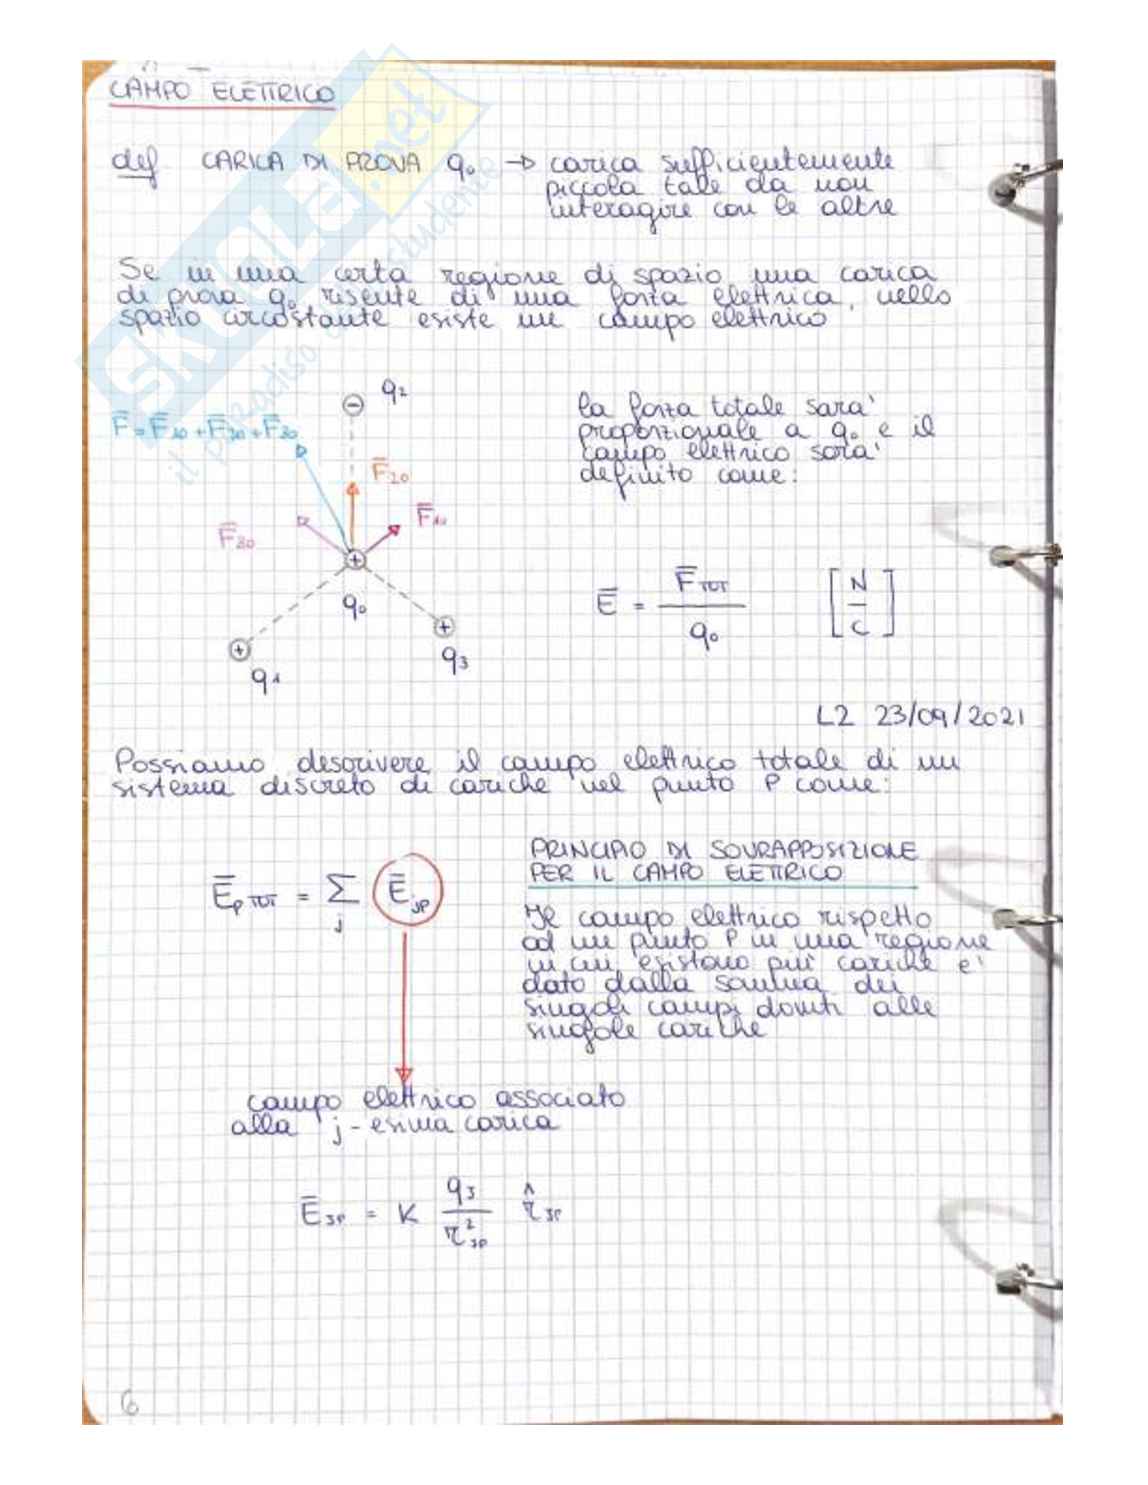 CAMPO ELETTRICO
def CARICA DI PROVA q₀ → carica sufficientemente
piccola tale da non
interagire con le altre
Se in una certa regione di spazio una carica
di prova q₀ risente di una forza elettrica, nello
spazio circostante esiste un campo elettrico
q₂
F̄ = F̄₁₀ + F̄₂₀ + F̄₃₀
F̄₂₀
F̄₁₀
F̄₃₀
q₀
q₁
q₃
la forza totale sara'
proporzionale a q₀ e il
campo elettrico sara'
definito come:
Ē = F̄TOT / q₀ [N/C]
L2 23/09/2021
Possiamo descrivere il campo elettrico totale di un
sistema discreto di cariche nel punto P come:
Ēp TOT = Σj Ējp
PRINCIPIO DI SOVRAPPOSIZIONE
PER IL CAMPO ELETTRICO
Il campo elettrico rispetto
ad un punto P in una regione
in cui esistono più cariche e'
dato dalla somma dei
singoli campi dovuti alle
singole cariche
campo elettrico associato
alla j-esima carica
ĒJP = K qJ / r²JP r̂JP
6
skuola.net
il paradiso dello studente